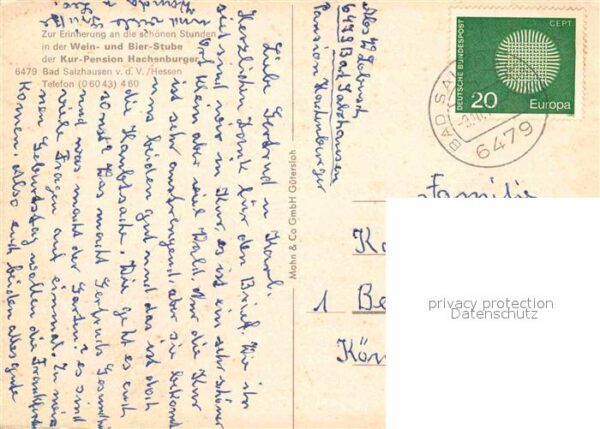 Zur Erinnerung an die schönen Stunden
in der Wein- und Bier-Stube
der Kur-Pension Hachenburger
6479 Bad Salzhausen v. d. V. / Hessen
Telefon (0 60 43) 4 60
Liebe Gertrud u. Karl.
Herzlichen Dank für den Brief. Wie ihr
seht sind wir in Kur, es ist ein sehr schöner
Ort klein aber viel Wald. Nur die Kur
ist sehr anstrengend, aber sie bekommt
uns beiden gut und das ist doch
die Hauptsache. Wie geht es euch
sonst. Was macht Gertruds Gesundheit
und was macht der Garten? es sind
viele Fragen auf einmal. Zu
nen Geburtstag wollen die Frankfurter
kommen. Also euch beiden alles gute
Mohn & Co GmbH Gütersloh
Abs W.
6479 Bad Salzhausen
Pension Hachenburger
DEUTSCHE BUNDESPOST
CEPT
20
Europa
BAD SAL
6479
Familie
K
1 Be
Kön
privacy protection
Datenschutz